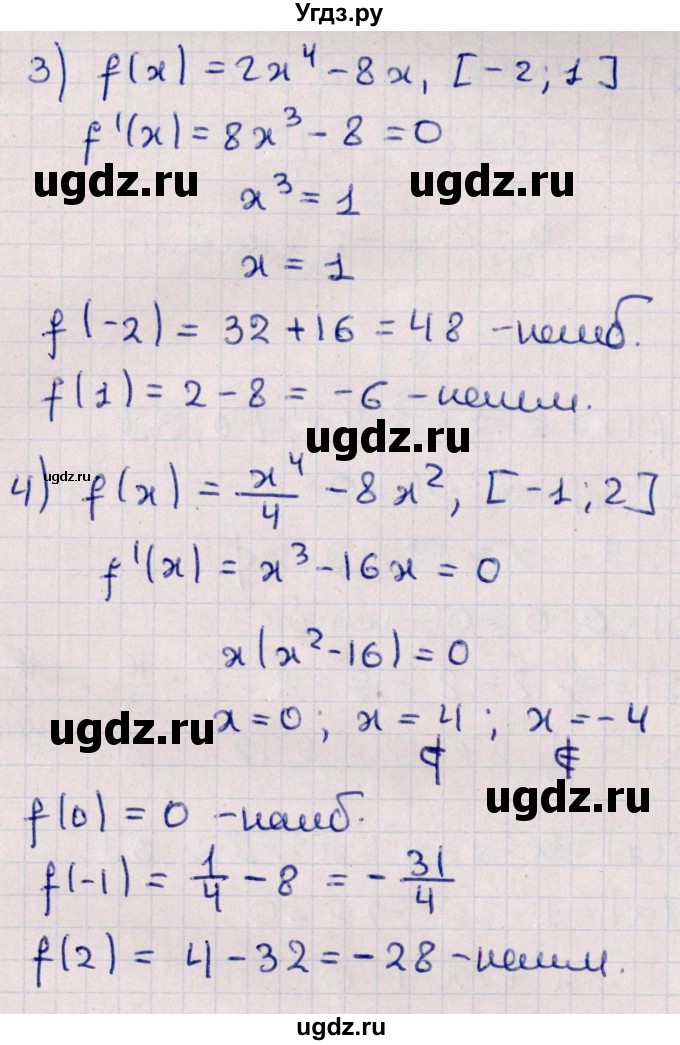 Угдз.ру
3) f(x) = 2x⁴ - 8x, [-2; 1]
f'(x) = 8x³ - 8 = 0
ugdz.ru ugdz.ru
x³ = 1
x = 1
f(-2) = 32 + 16 = 48 - наиб.
f(1) = 2 - 8 = -6 - наим.
ugdz.ru
ugdz.ru
4) f(x) = x⁴/4 - 8x², [-1; 2]
f'(x) = x³ - 16x = 0
x(x² - 16) = 0
x = 0; x = 4; x = -4
ugdz.ru
∉ ∉
ugdz.ru
f(0) = 0 - наиб.
f(-1) = 1/4 - 8 = -31/4
f(2) = 4 - 32 = -28 - наим.
ugdz.ru